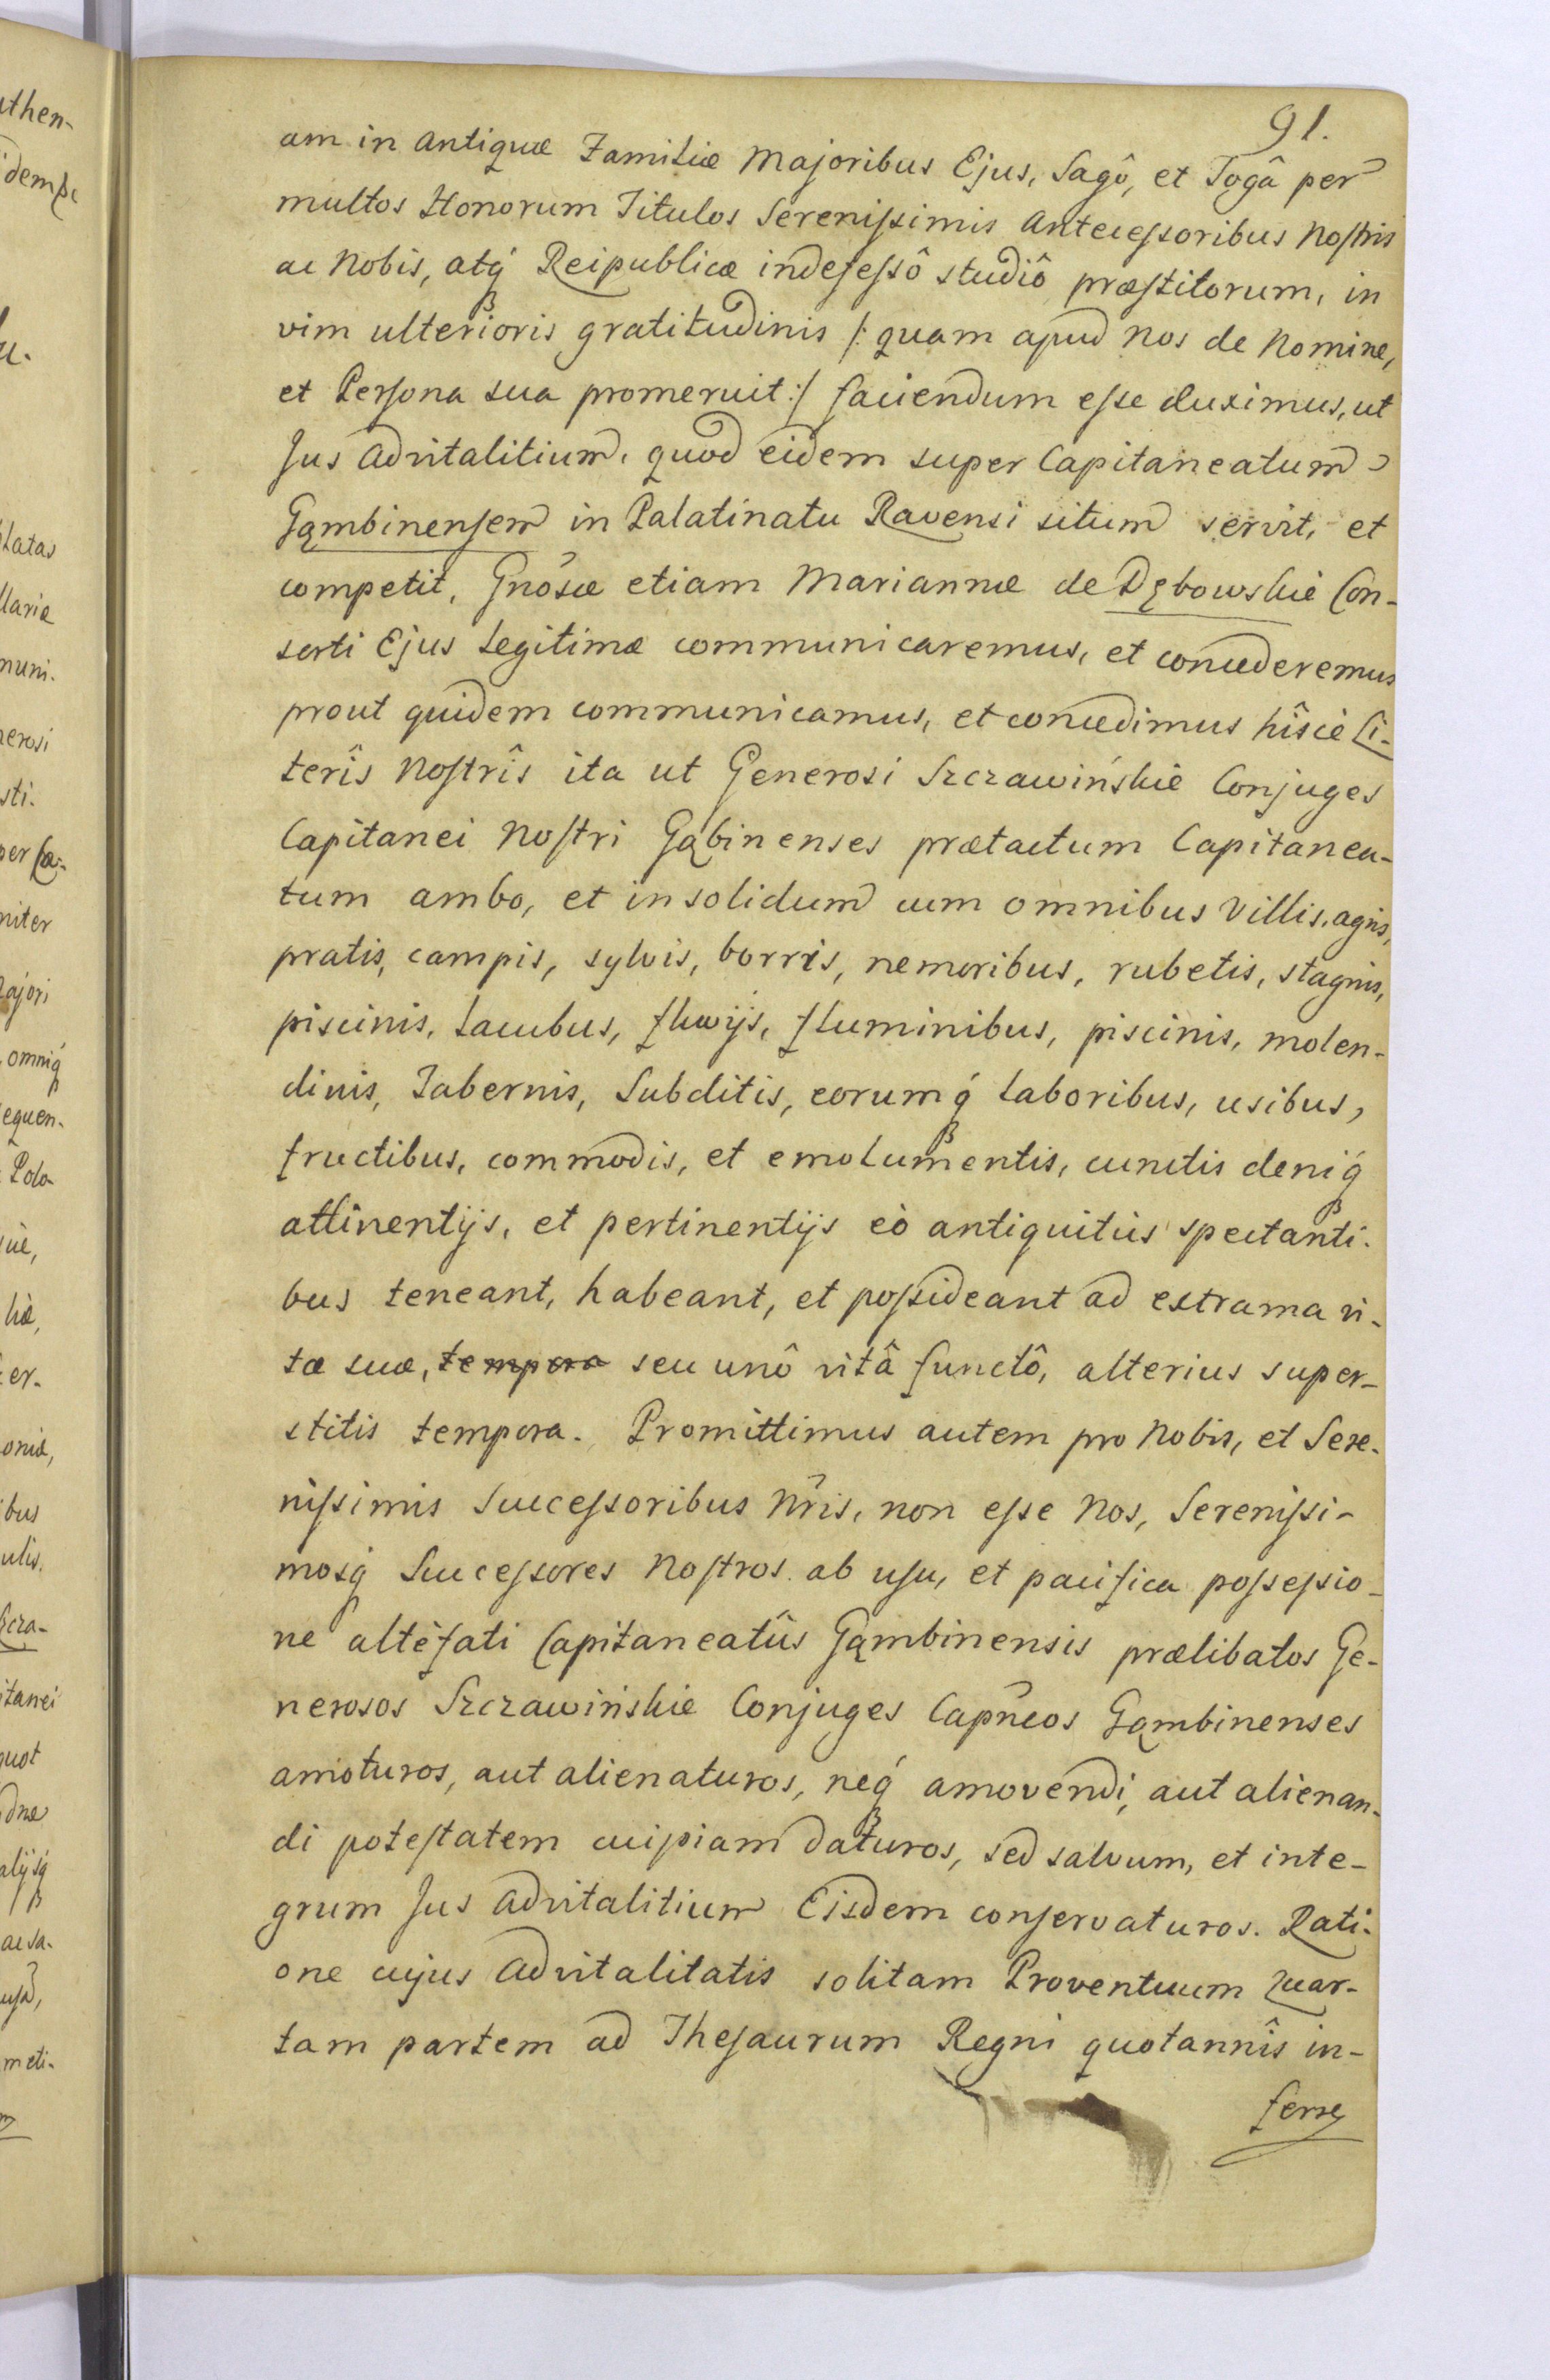 91.
am in antiquæ Familiæ Majoribus Ejus, Sagô, et Togâ per
multos Honorum Titulos Serenissimis Antecessoribus Nostris
ac Nobis, atq́ Reipublicæ indefessô studiô præstitorum, in
vim ulterioris gratitudinis /: quam apud Nos de Nomine,
et Persona sua promeruit :/ faciendum esse duximus, ut
Jus Advitalitium, quod eidem super Capitaneatum
Gąmbinensem in Palatinatu Ravensi situm servit, et
competit, Gnősæ etiam Mariannæ de Dębowskie Con-
sorti Ejus Legitimæ communicaremus, et concederemus
prout quidem communicamus, et concedimus hîsce Li-
terîs Nostrîs ita ut Generosi Szczawińskie Conjuges
Capitanei Nostri Gąbinenses prætactum Capitanea-
tum ambo, et in solidum cum omnibus Villis, agris,
pratis, campis, sylvis, borris, nemoribus, rubetis, stagnis,
piscinis, Lacubus, fluvijs, fluminibus, piscinis, molen-
dinis, Tabernis, Subditis, eorumq́ Laboribus, usibus,
fructibus, commodis, et emolumentis, cunctis deniq́
attinentijs, et pertinentijs eò antiquitùs spectanti-
bus teneant, habeant, et possideant ad extrama vi-
tæ suæ, tempora seu unô vitâ functô, alterius super-
stitis tempora. Promittimus autem pro Nobis, et Sere-
nissimis Successoribus Nr̃is, non esse Nos, Serenissi-
mosq́ Successores Nostros ab usu, et pacifica possessio-
ne altèfati Capitaneatûs Gąmbinensis prælibatos Ge-
nerosos Szczawińskie Conjuges Capn̄eos Gąmbinenses
amoturos, aut alienaturos, neq́ amovendi, aut alienan-
di potestatem cuipiam daturos, sed salvum, et inte-
grum Jus Advitalitium Eisdem conservaturos. Rati-
one cujus Advitalitatis solitam Proventuum quar-
tam partem ad Thesaurum Regni quotannîs in-
ferre
uthen-
idemq́
u.
latas
llariæ
muni-
nerosi
sti-
per Ca-
niter
Majori
omniq́
sequen-
Polo-
iæ,
liæ,
er-
oniæ,
ibus
ulis,
Szcza-
itanei
quot
dne
alijsq́
ac sa-
meti-